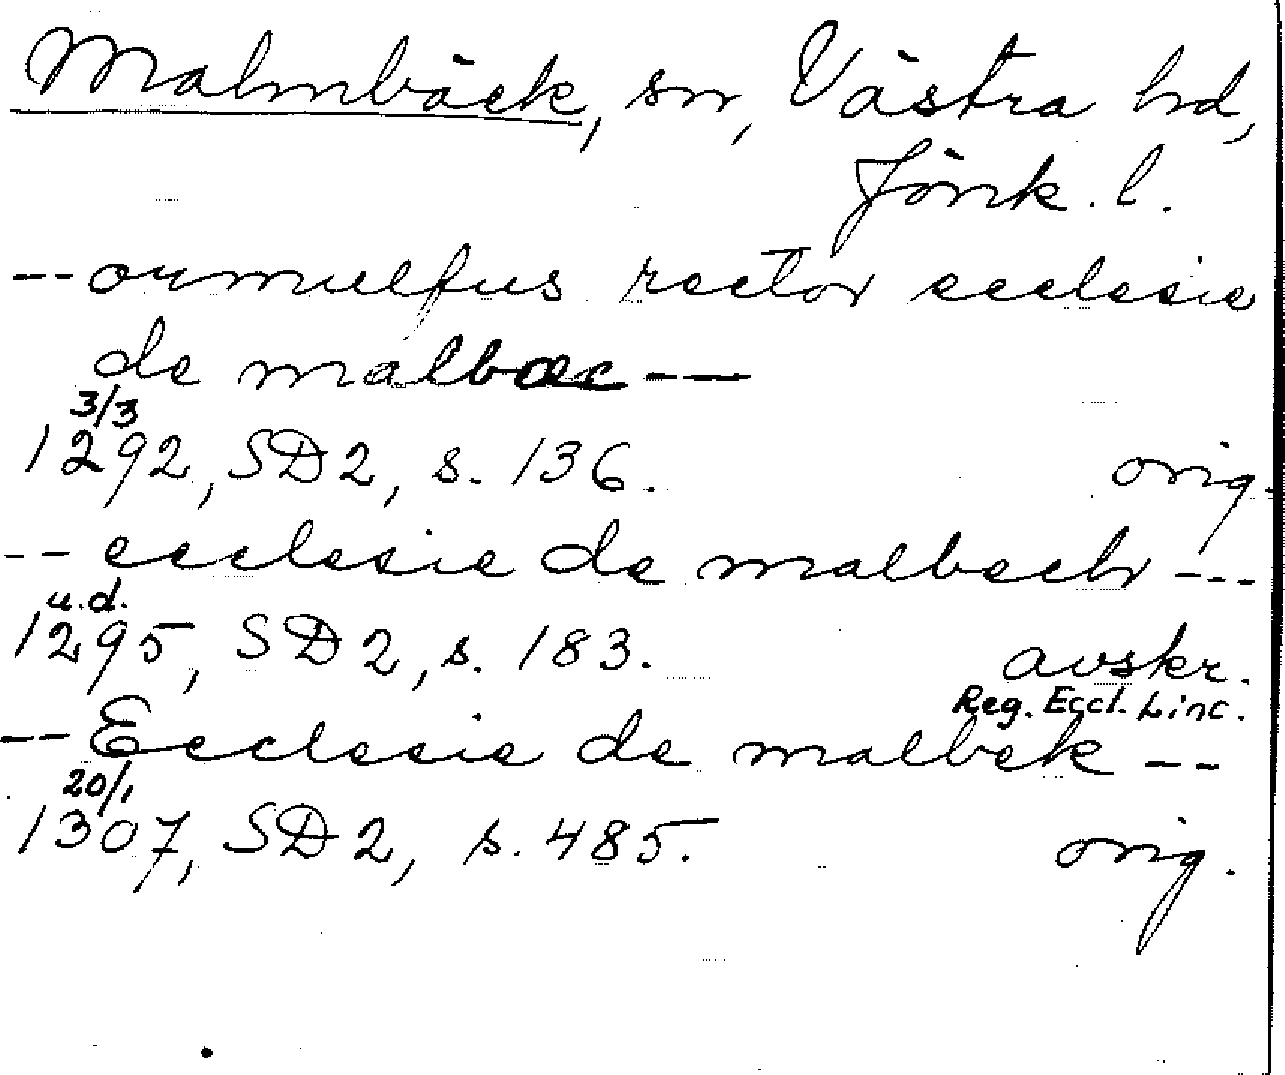 Malmbäck, sn, Västra hd,
Jönk. l.
-- ormulfus rector ecclesie
de malbæc ---
3/3
1292, SD 2, s. 136. orig.
-- ecclesie de malbech ---
u.d.
1295, SD 2, s. 183. avskr.
Reg. Eccl. Linc.
-- Ecclesie de malbek --
20/1
1307, SD 2, s. 485. orig.